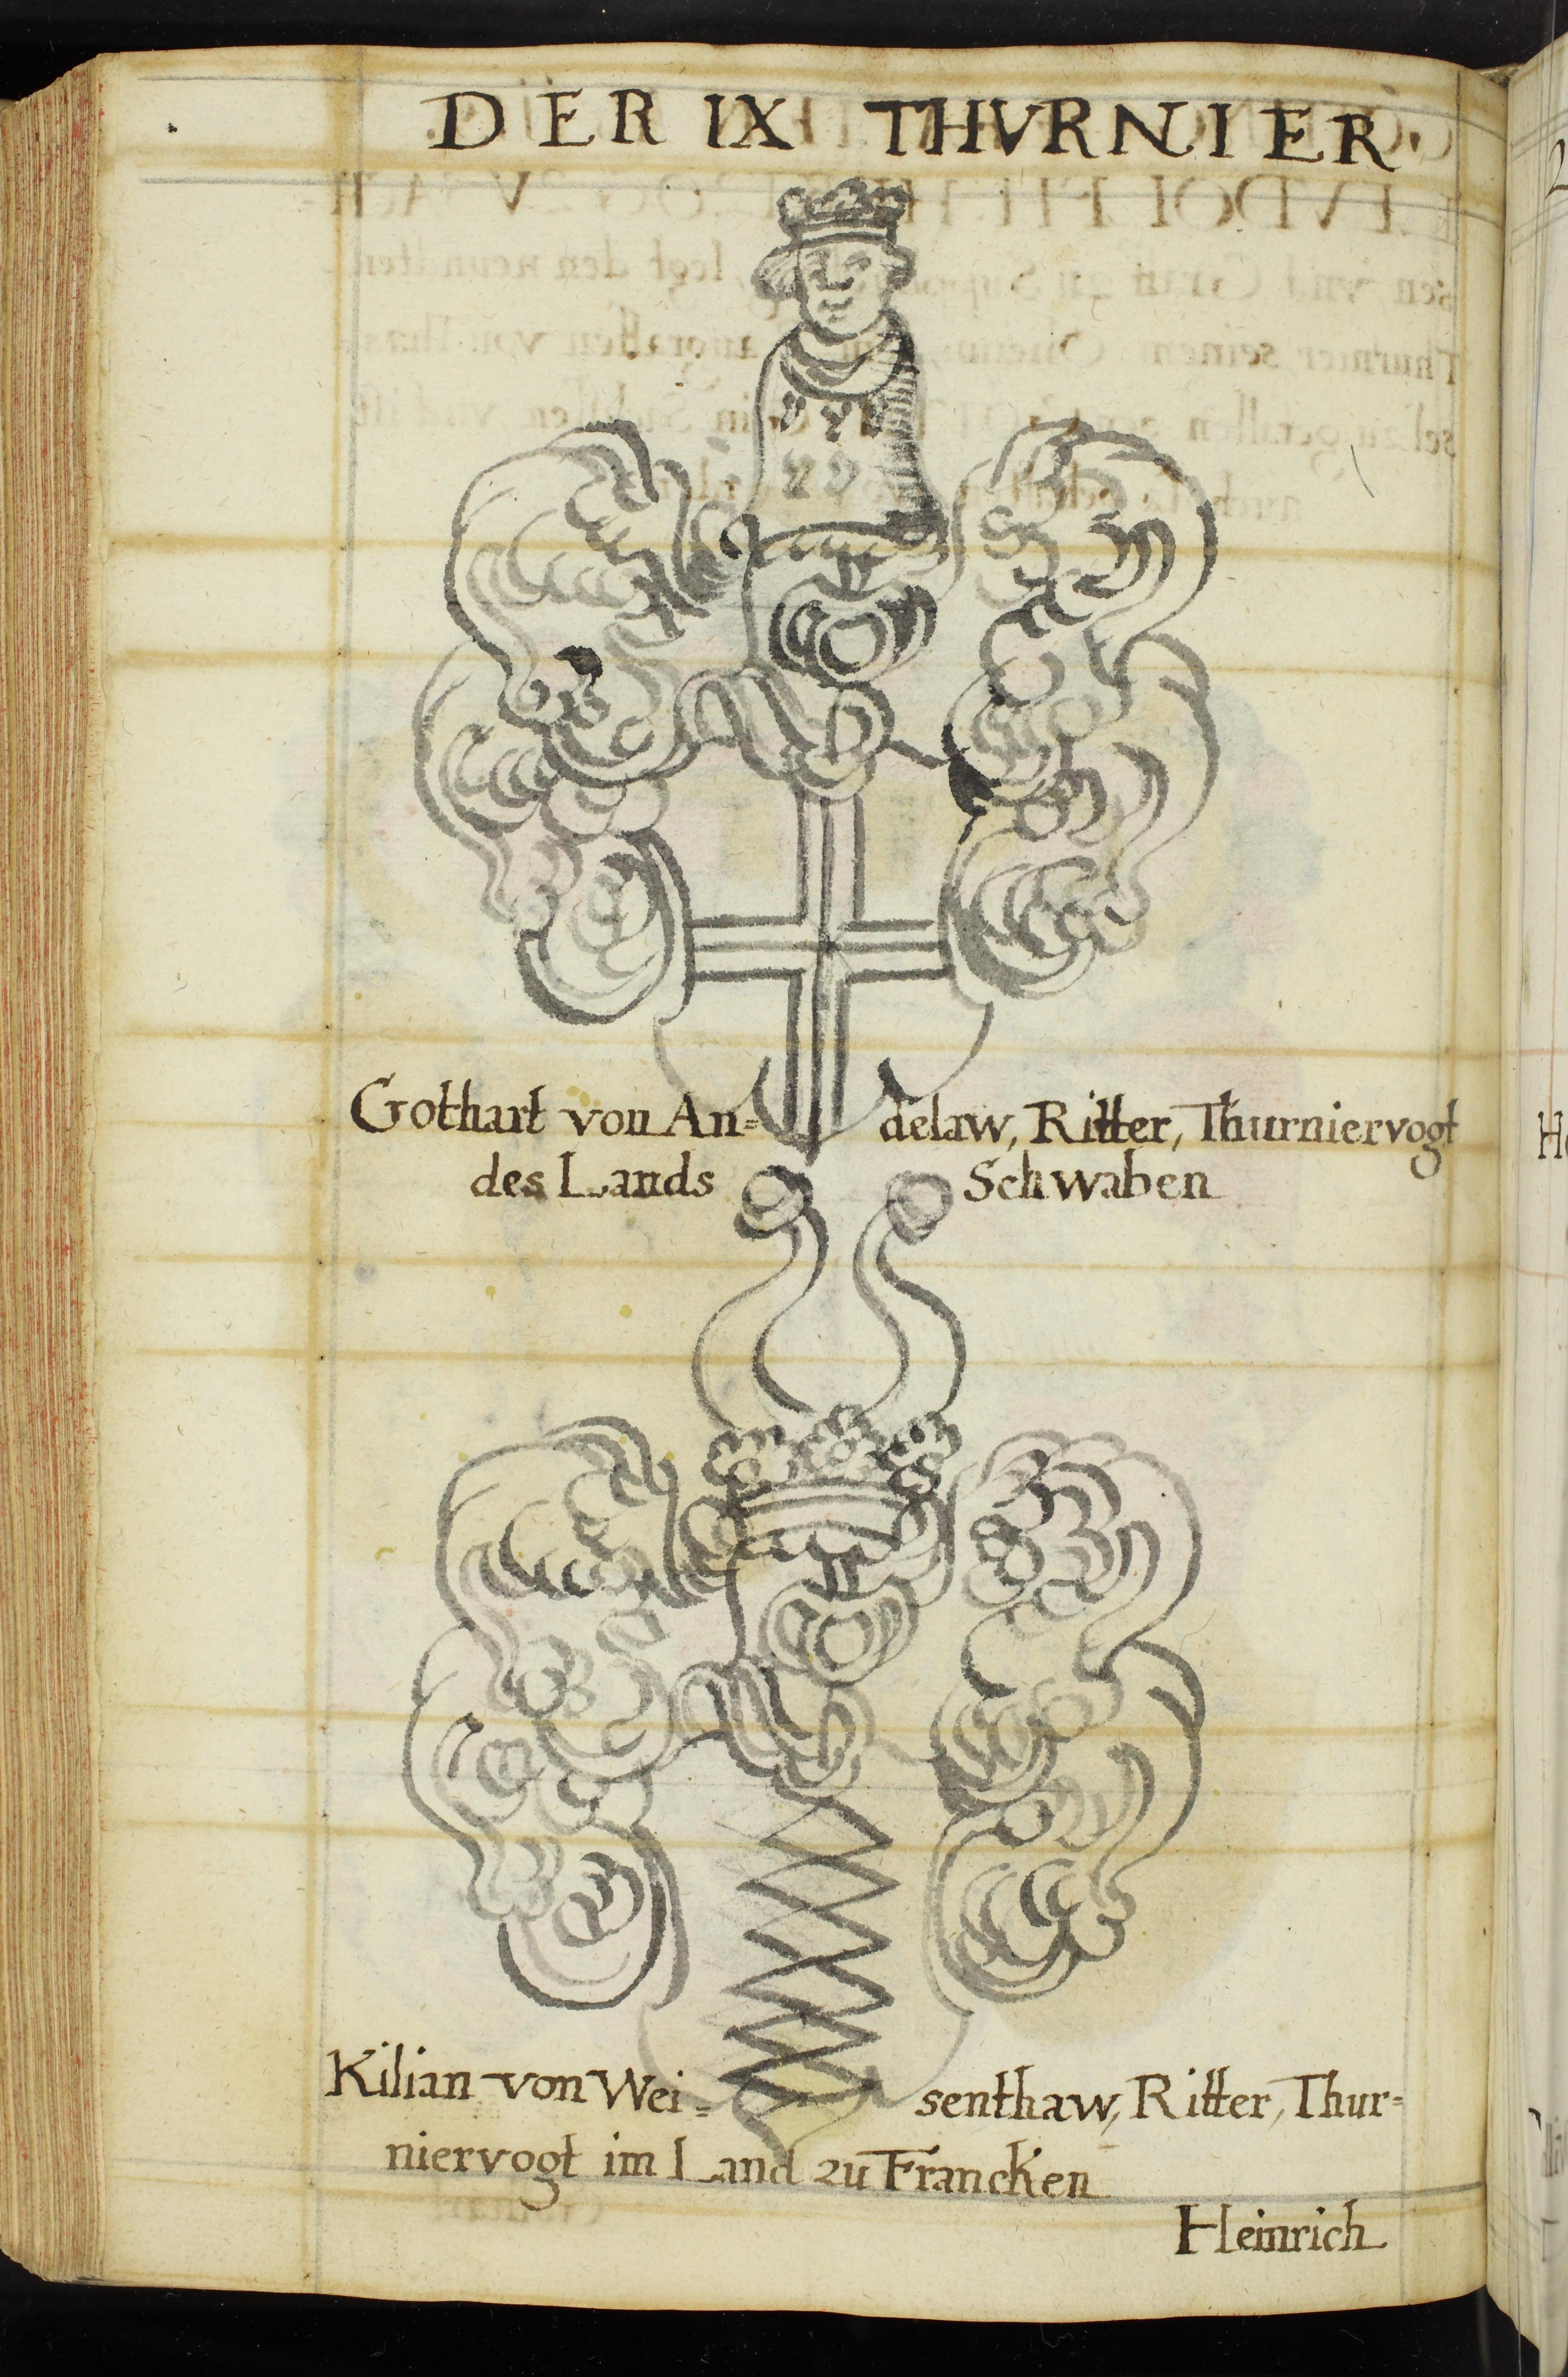 DER IX THVRNIER.
Gothart von An= delaw, Ritter, Thurniervogt
des Lands Schwaben
Kilian von Wei= senthaw, Ritter, Thur=
niervogt im Land zu Francken
Heinrich